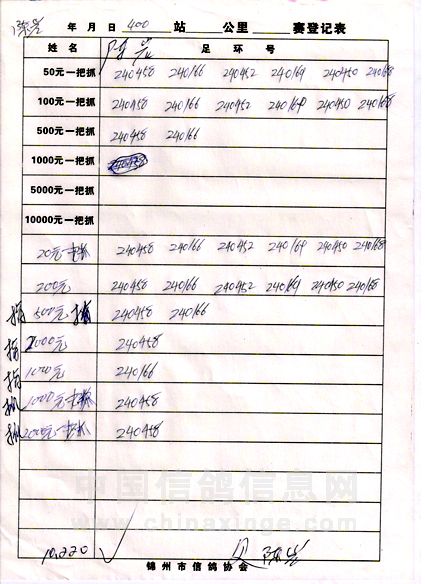 陈岩 年 月 日 400 站 公里 赛登记表
姓名 陈岩 足环号
50元一把抓 240458 240166 240452 240164 240450 240168
100元一把抓 240458 240166 240452 240164 240450 240168
500元一把抓 240458 240166
1000元一把抓
5000元一把抓
10000元一把抓
20元一把抓 240458 240166 240452 240164 240450 240168
200元 240458 240166 240452 240164 240450 240168
500元 240458 240166
2000元 240458
1000元 240166
1000元一把抓 240458
2000元一把抓 240458
中国信鸽信息网
www.chinaxinge.com
10220 √ 陈岩
锦州市信鸽协会